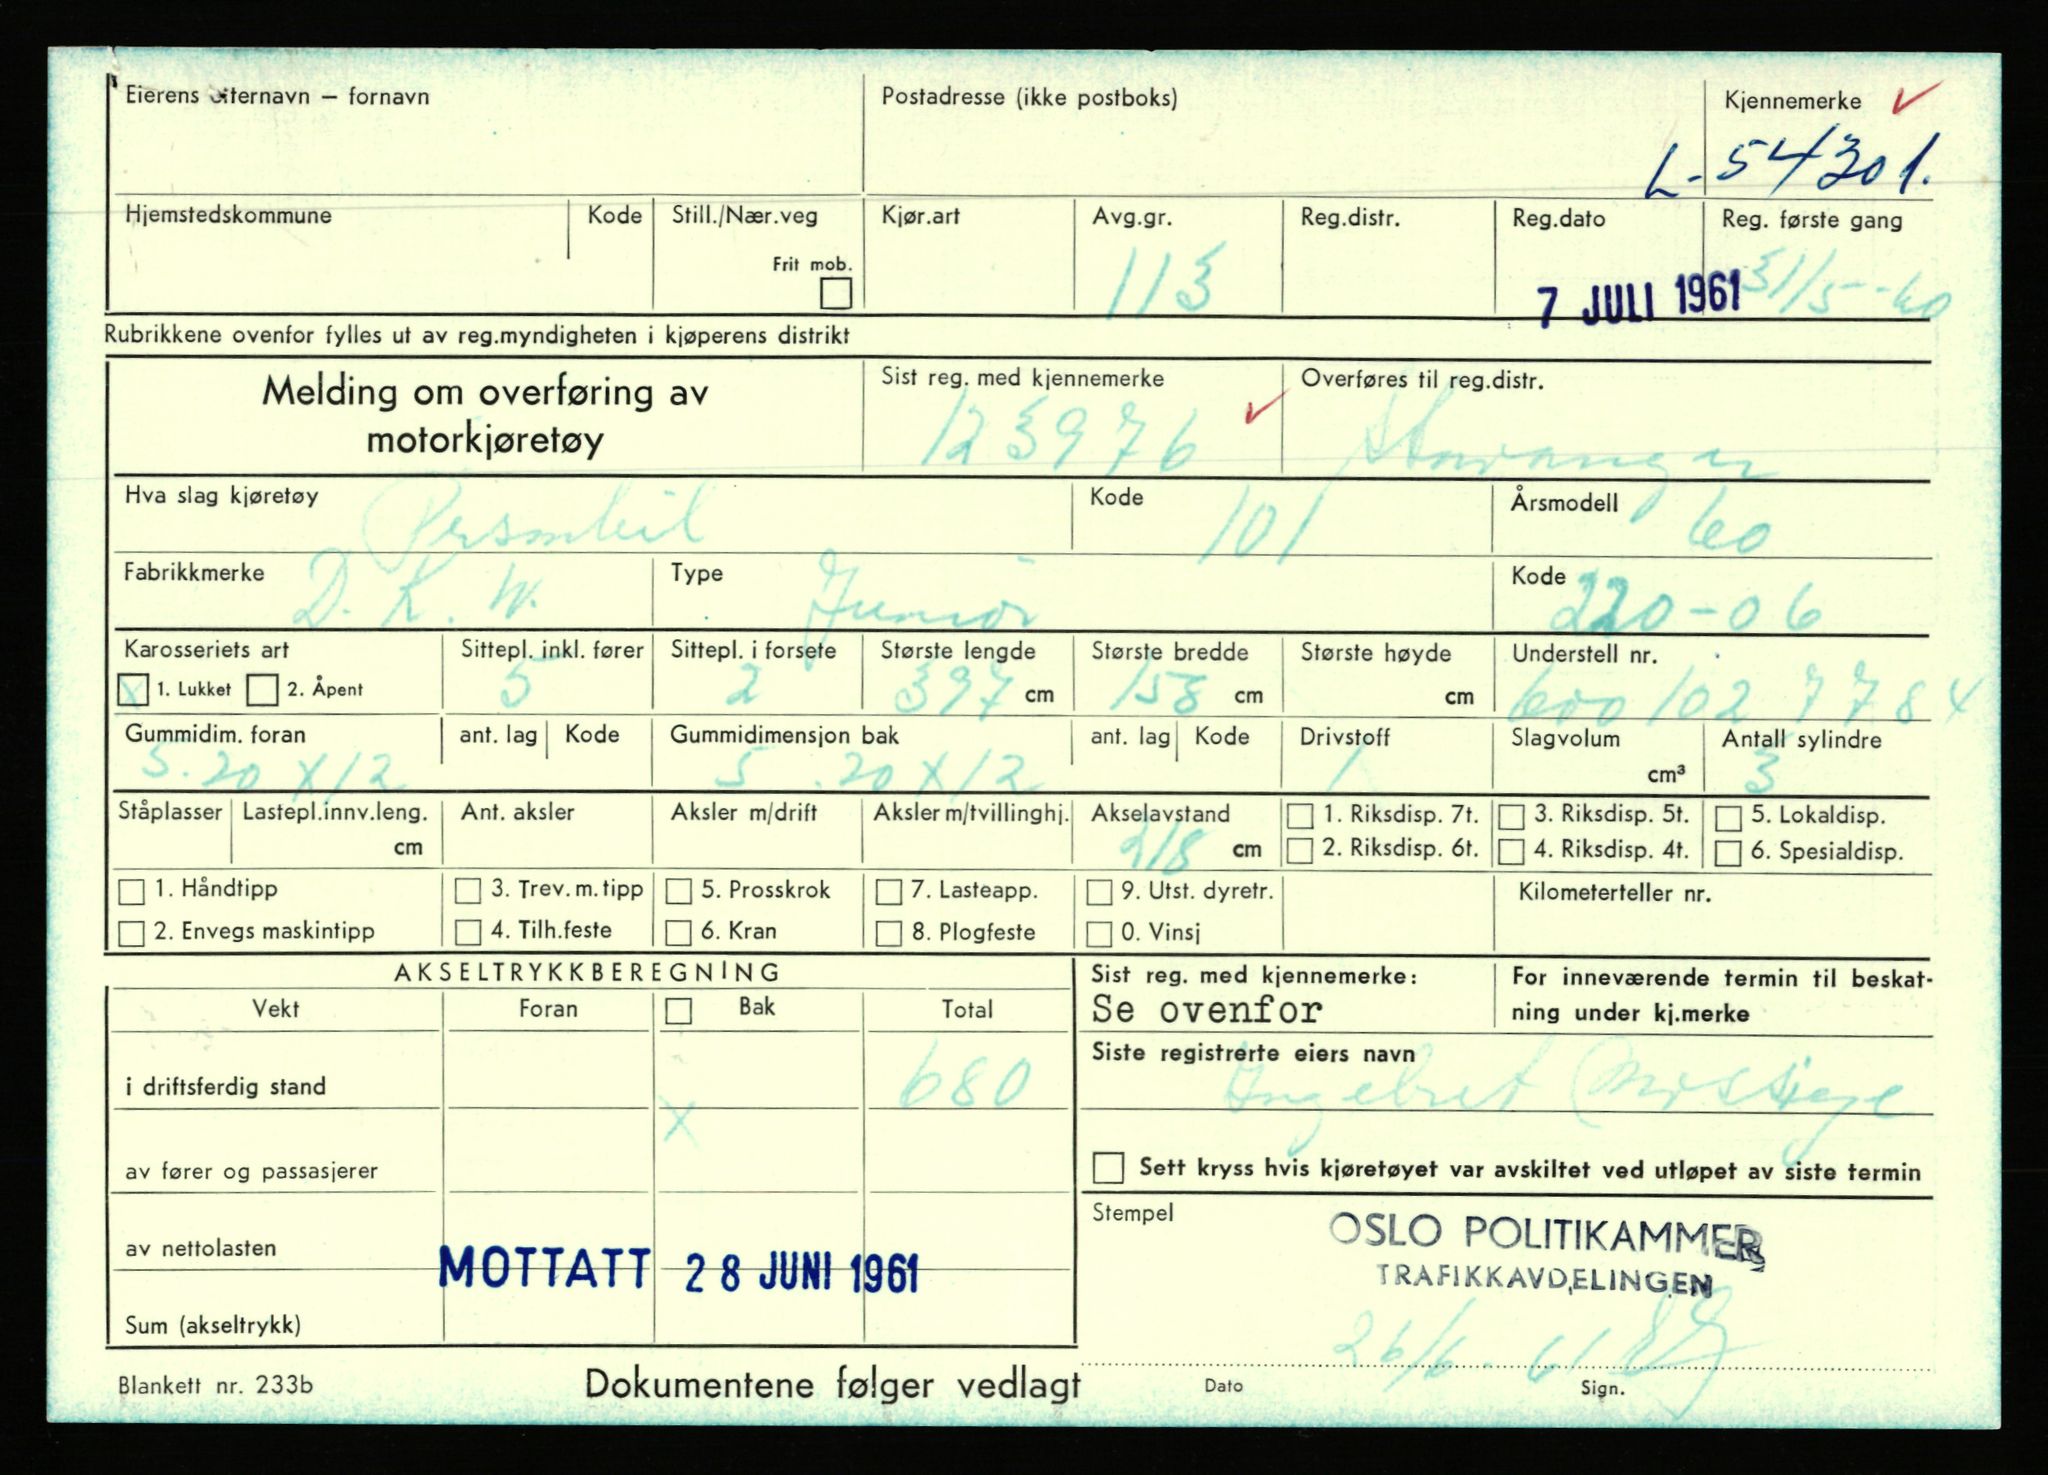 Eierens etternavn – fornavn Postadresse (ikke postboks) Kjennemerke
L- 54301.
Hjemstedskommune Kode Still./Nær.veg Kjør.art Avg.gr. Reg.distr. Reg.dato Reg. første gang
Frit mob.
113 7 JULI 1961 31/5-60
Rubrikkene ovenfor fylles ut av reg.myndigheten i kjøperens distrikt
Melding om overføring av motorkjøretøy
Sist reg. med kjennemerke Overføres til reg.distr.
123976 Stavanger
Hva slag kjøretøy Kode Årsmodell
Personbil 101 60
Fabrikkmerke Type Kode
D.K.W. Junior 220-06
Karosseriets art Sittepl. inkl. fører Sittepl. i forsete Største lengde Største bredde Største høyde Understell nr.
X 1. Lukket 2. Åpent 5 2 397 cm 158 cm cm 600 102 7784
Gummidim. foran ant. lag Kode Gummidimensjon bak ant. lag Kode Drivstoff Slagvolum Antall sylindre
5.20 X 12 5.20 X 12 1 cm³ 3
Ståplasser Lastepl.innv.leng. Ant. aksler Aksler m/drift Aksler m/tvillinghj. Akselavstand 1. Riksdisp. 7t. 3. Riksdisp. 5t. 5. Lokaldisp.
cm 218 cm 2. Riksdisp. 6t. 4. Riksdisp. 4t. 6. Spesialdisp.
1. Håndtipp 3. Trev. m. tipp 5. Prosskrok 7. Lasteapp. 9. Utst. dyretr. Kilometerteller nr.
2. Envegs maskintipp 4. Tilh.feste 6. Kran 8. Plogfeste 0. Vinsj
AKSELTRYKKBEREGNING Sist reg. med kjennemerke: For inneværende termin til beskat-
Vekt Foran Bak Total Se ovenfor ning under kj.merke
Siste registrerte eiers navn
i driftsferdig stand 680 Ingebret
X
av fører og passasjerer Sett kryss hvis kjøretøyet var avskiltet ved utløpet av siste termin
Stempel OSLO POLITIKAMMER
av nettolasten MOTTATT 28 JUNI 1961 TRAFIKKAVDELINGEN
Sum (akseltrykk) 26/6-61
Blankett nr. 233b Dokumentene følger vedlagt Dato Sign.